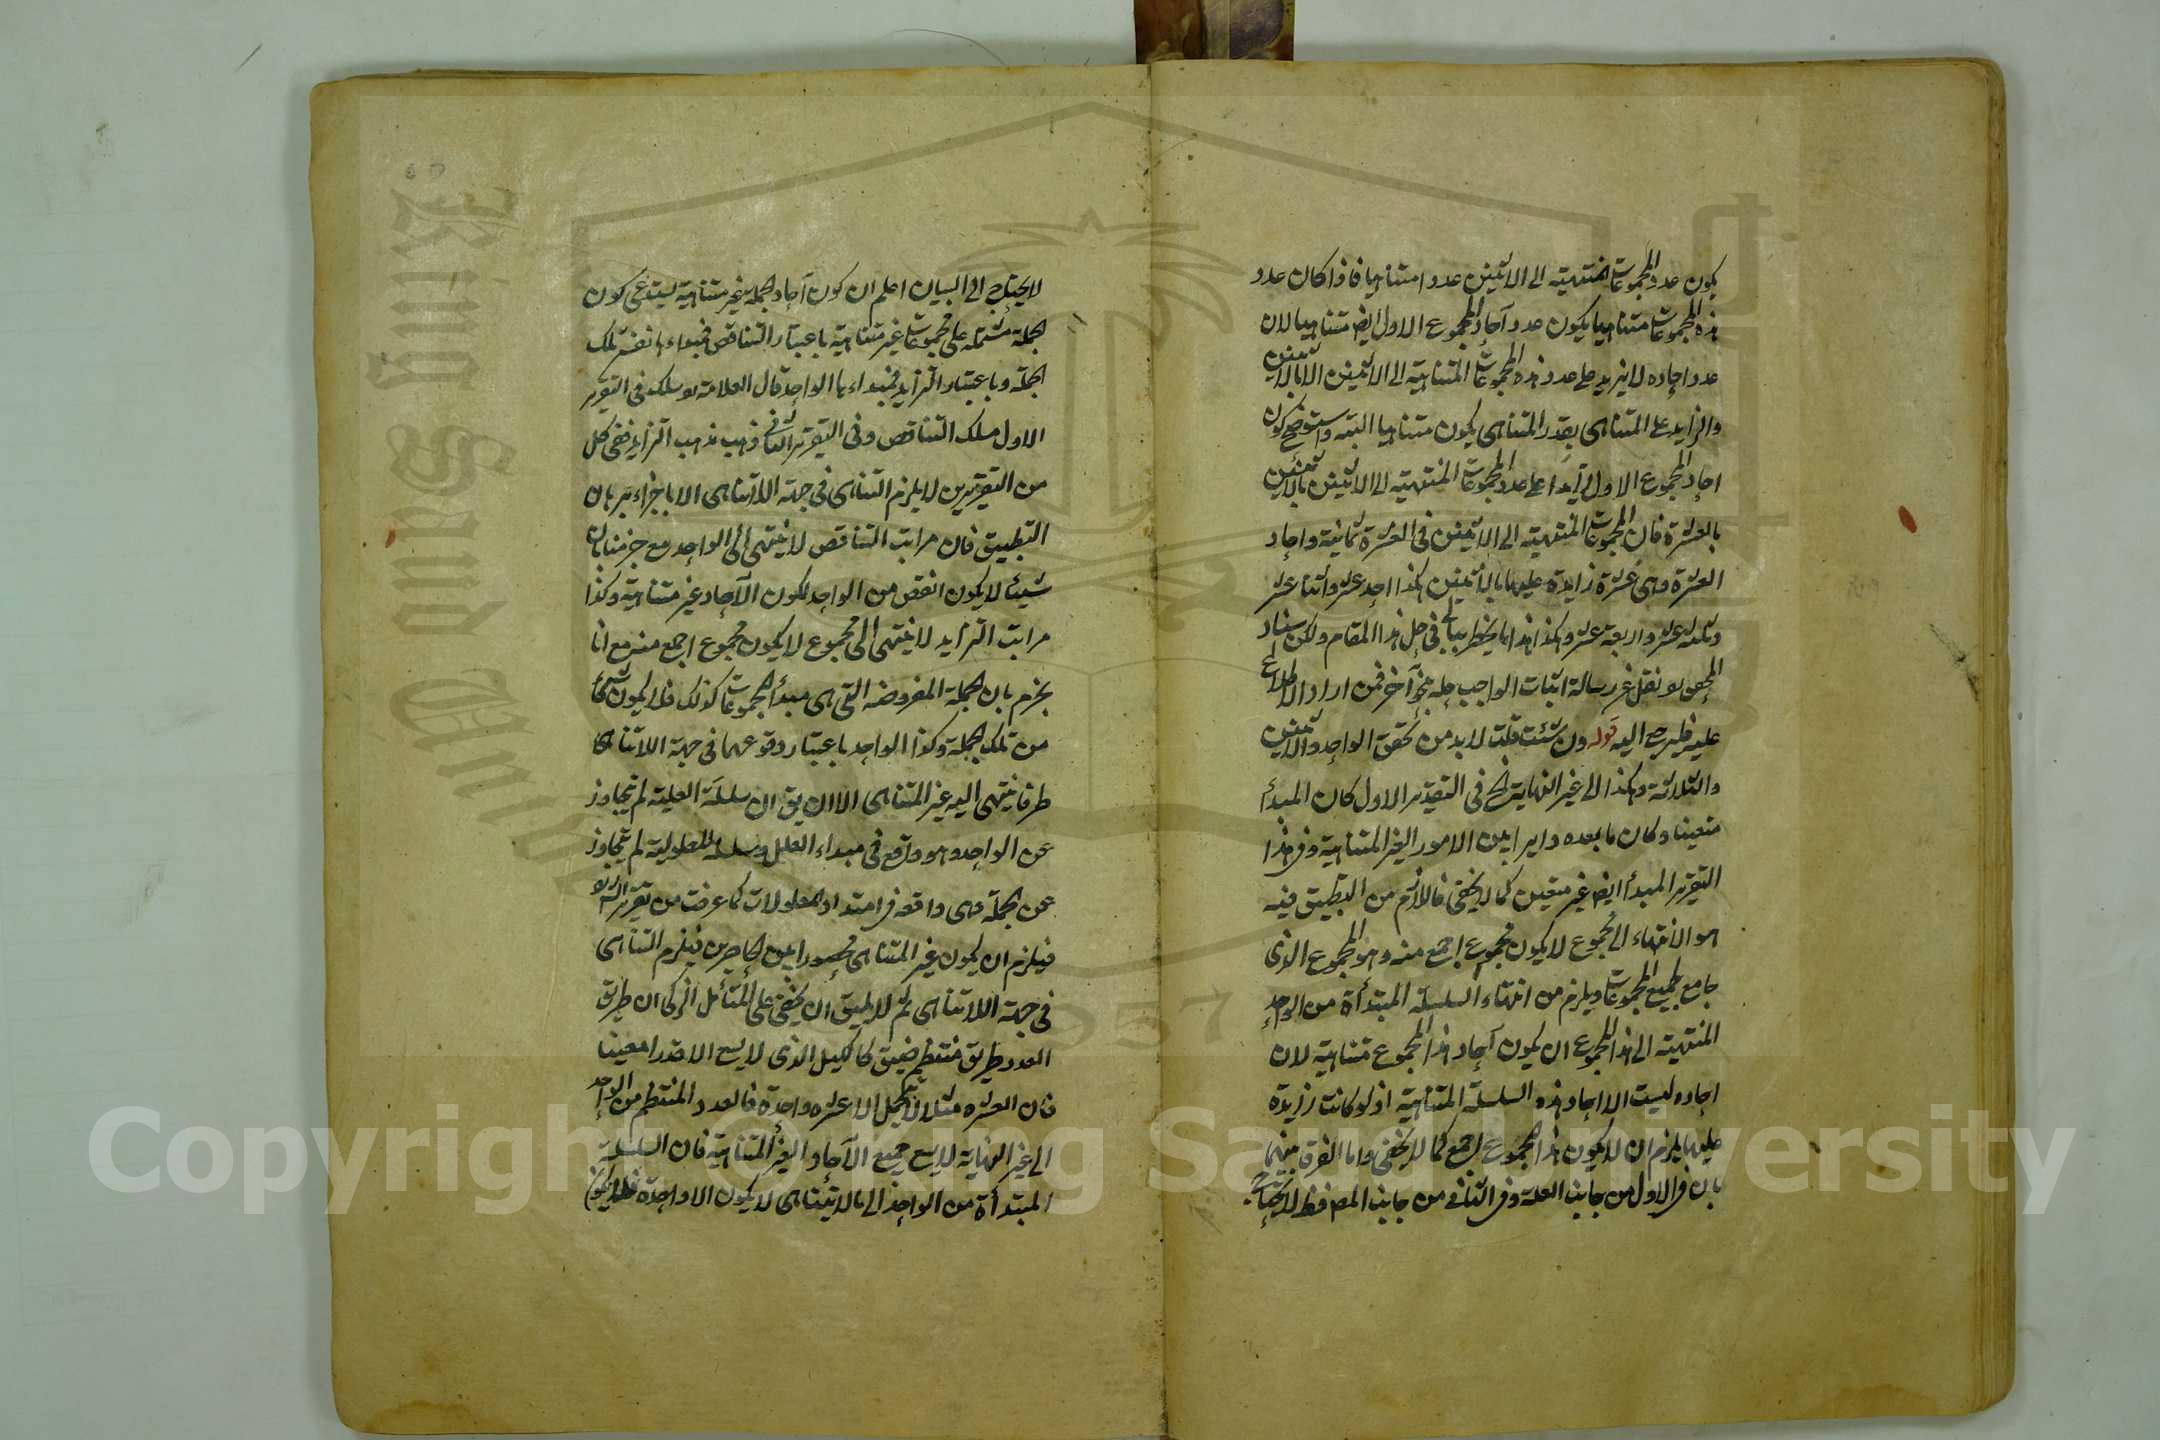 يكون عدد المجموعات المنتهية الى الاثنين عددا متناهيا فاذا كان عدد
هذه المجموعات متناهيا يكون عدد آحاد المجموع الاول ايضا متناهيا لان
عدد احاده لا يزيد على عدد هذه المجموعات المتناهية الى الاثنين الا بالاثنين
والزايد على المتناهى بقدر المتناهى يكون متناهيا البتة واستوضح كون
احاد المجموع الاول زايدا على عدد المجموعات المنتهية الى الاثنين بالاثنين
بالعشرة فان المجموعات المنتهية الى الاثنين فى العشرة ثمانية واحاد
العشرة وهى عشرة زايدة عليها بالاثنين كذا احد عشر واثنا عشر
وثلثة عشر واربعة عشر وهكذا هذا ما يخطر ببالى فى حل هذا المقام ولكن
نقل عن رسالة اثبات الواجب حله بنحو آخر فمن اراد الاطلاع
عليه فليرجع اليه قوله وان شئت قلت لا بد من تحقق الواحد والاثنين
والثلاثة وهكذا الى غير النهاية الخ فى التقرير الاول كان المبدأ
متعينا وكان ما بعده دايرا بين الامور الغير المتناهية وفى هذا
التقرير المبدأ ايضا غير متعين كما لا يخفى فاللازم من التطبيق فيه
هو الانتهاء الى مجموع لا يكون مجموع اجمع منه وهو المجموع الذى
جامع لجميع المجموعات ويلزم من انتهاء السلسلة المبتدأة من الواحد
المنتهية الى هذا المجموع ان يكون آحاد هذا المجموع متناهية لان
احاده ليست الا احاد هذه السلسلة المتناهية اذ لو كانت زايدة
عليها يلزم ان لا يكون هذا المجموع اجمع كما لا يخفى واما الفرق بينهما
بان فى الاول من جانب العلة وفى الثانى من جانب المعلول فظ لا يحتاج
لا يحتاج الى البيان اعلم ان كون آحاد الجملة غير متناهية يستدعى كون
الجملة مشتملة على مجموعات غير متناهية باعتبار التناقص فمبداءها نفس تلك
الجملة وباعتبار التزايد فمبداءها الواحد قال العلامة سلك فى التقرير
الاول مسلك التناقص وفى التقرير الثانى ذهب مذهب التزايد ففى كل
من التقريرين لا يلزم التناهى فى جهة اللاتناهى الا باجزاء برهان
التطبيق فان مراتب التناقص لا ينتهى الى الواحد مع جزمنا بان
شيئا لا يكون انقص من الواحد لكون الآحاد غير متناهية وكذا
مراتب التزايد لا ينتهى الى مجموع لا يكون مجموع اجمع منه مع انا
نجزم بان الجملة المفروضة التى هى مبدأ المجموعات كذلك فلا يكون شئ
من تلك الجملة وكذا الواحد باعتبار وقوعهما فى جهة اللاتناهى
طرفا ينتهى اليه غير المتناهى الا ان يق ان سلسلة العلية لم تجاوز
عن الواحد وهو وقع فى مبداء العلل وسلسلة المعلولية لم تجاوز
عن الجملة وهى واقعة فى امتداد المعلولات كما عرفت من تقرير
فيلزم ان يكون غير المتناهى محصورا بين الحاصرين فيلزم التناهى
فى جهة اللاتناهى ثم لا يليق ان يخفى على المتأمل الزكى ان طريق
العدد طريق منتظم ضيق كالكيل الذى لا يسع الا قدرا معينا
فان العشرة مثلا لا يكيل الا عشرة واحدة فالعدد المنتظم من الواحد
الى غير النهاية لا يسع جميع الآحاد الغير المتناهية فان السلسلة
المبتدأة من الواحد الى ما لا يتناهى لا يكون الا واحدة فلا يكون
Copyright © King Saud University
King Saud University
1957